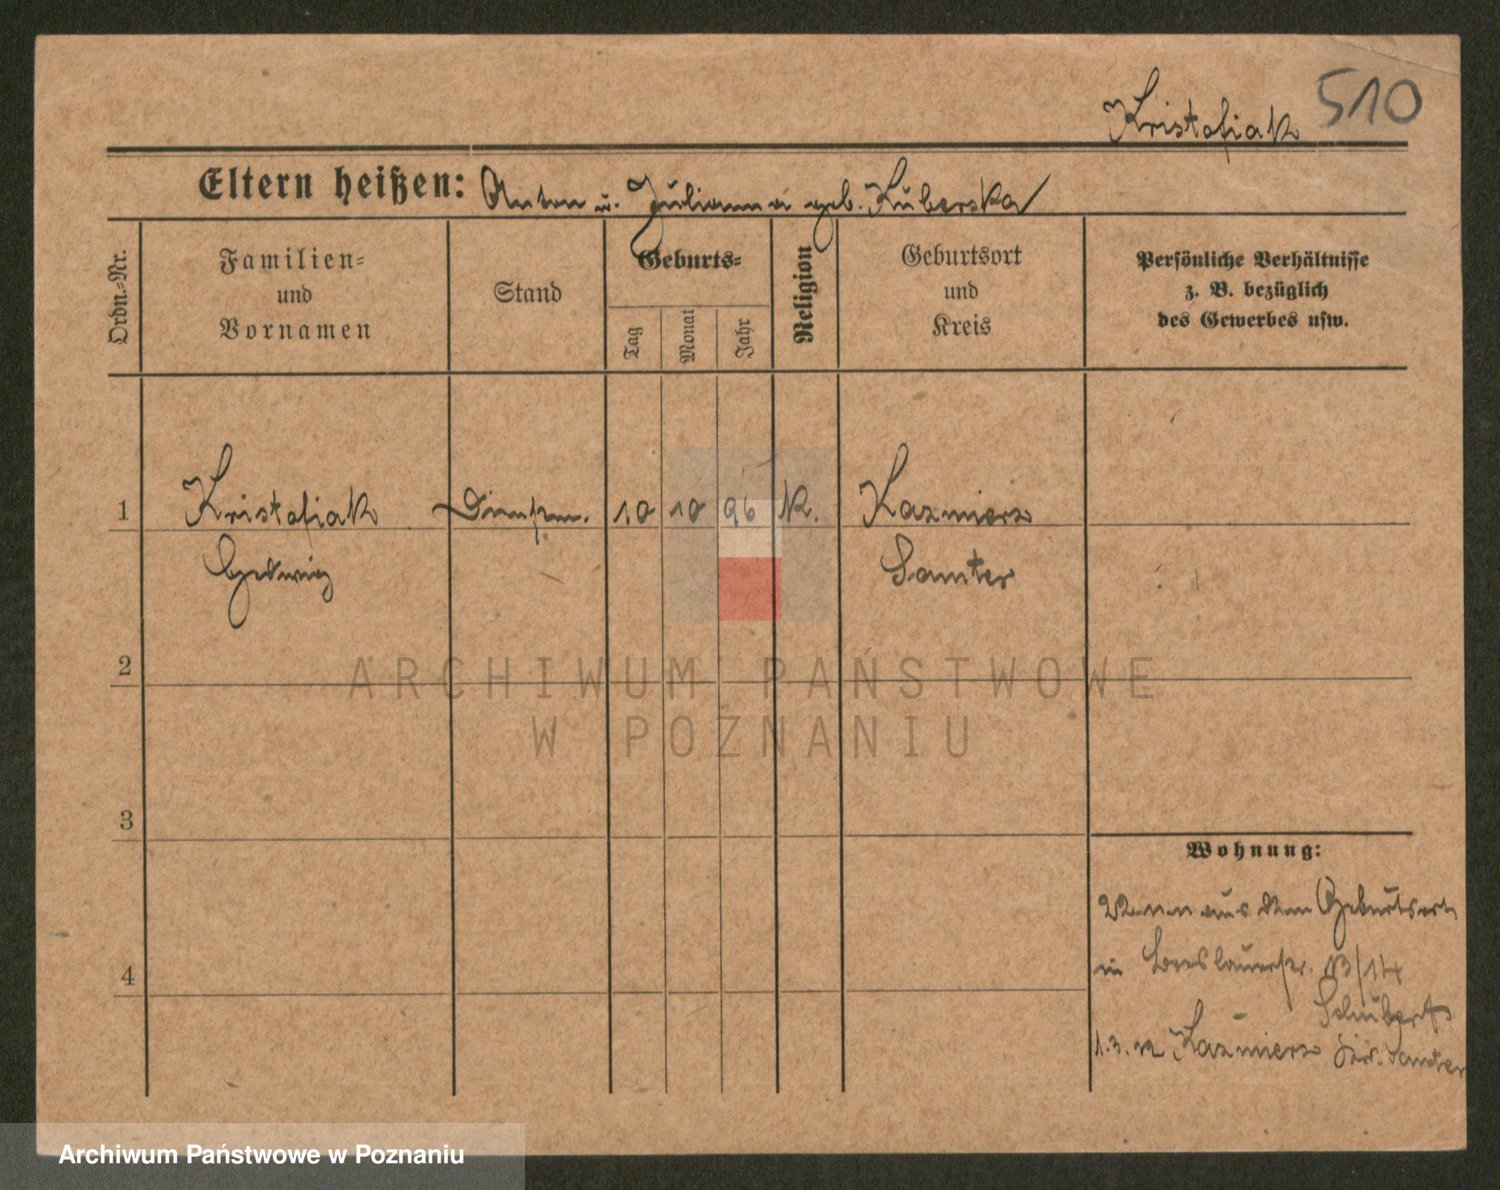 Kristofiak 510
Eltern heißen: Anton u. Julianna geb. Kuberska
Ordn.-Nr.
Familien-
und
Vornamen
Stand
Geburts-
Tag
Monat
Jahr
Religion
Geburtsort
und
Kreis
Persönliche Verhältnisse
z. B. bezüglich
des Gewerbes usw.
1 Kristofiak 10 10 96 K. Kazmierz
Hedwig Samter
2
ARCHIWUM PAŃSTWOWE
W POZNANIU
3
4
Wohnung:
aus dem Geburtsort
in Breslauerstr. 13/14
Schubert
Kazmierz Kr. Samter
Archiwum Państwowe w Poznaniu